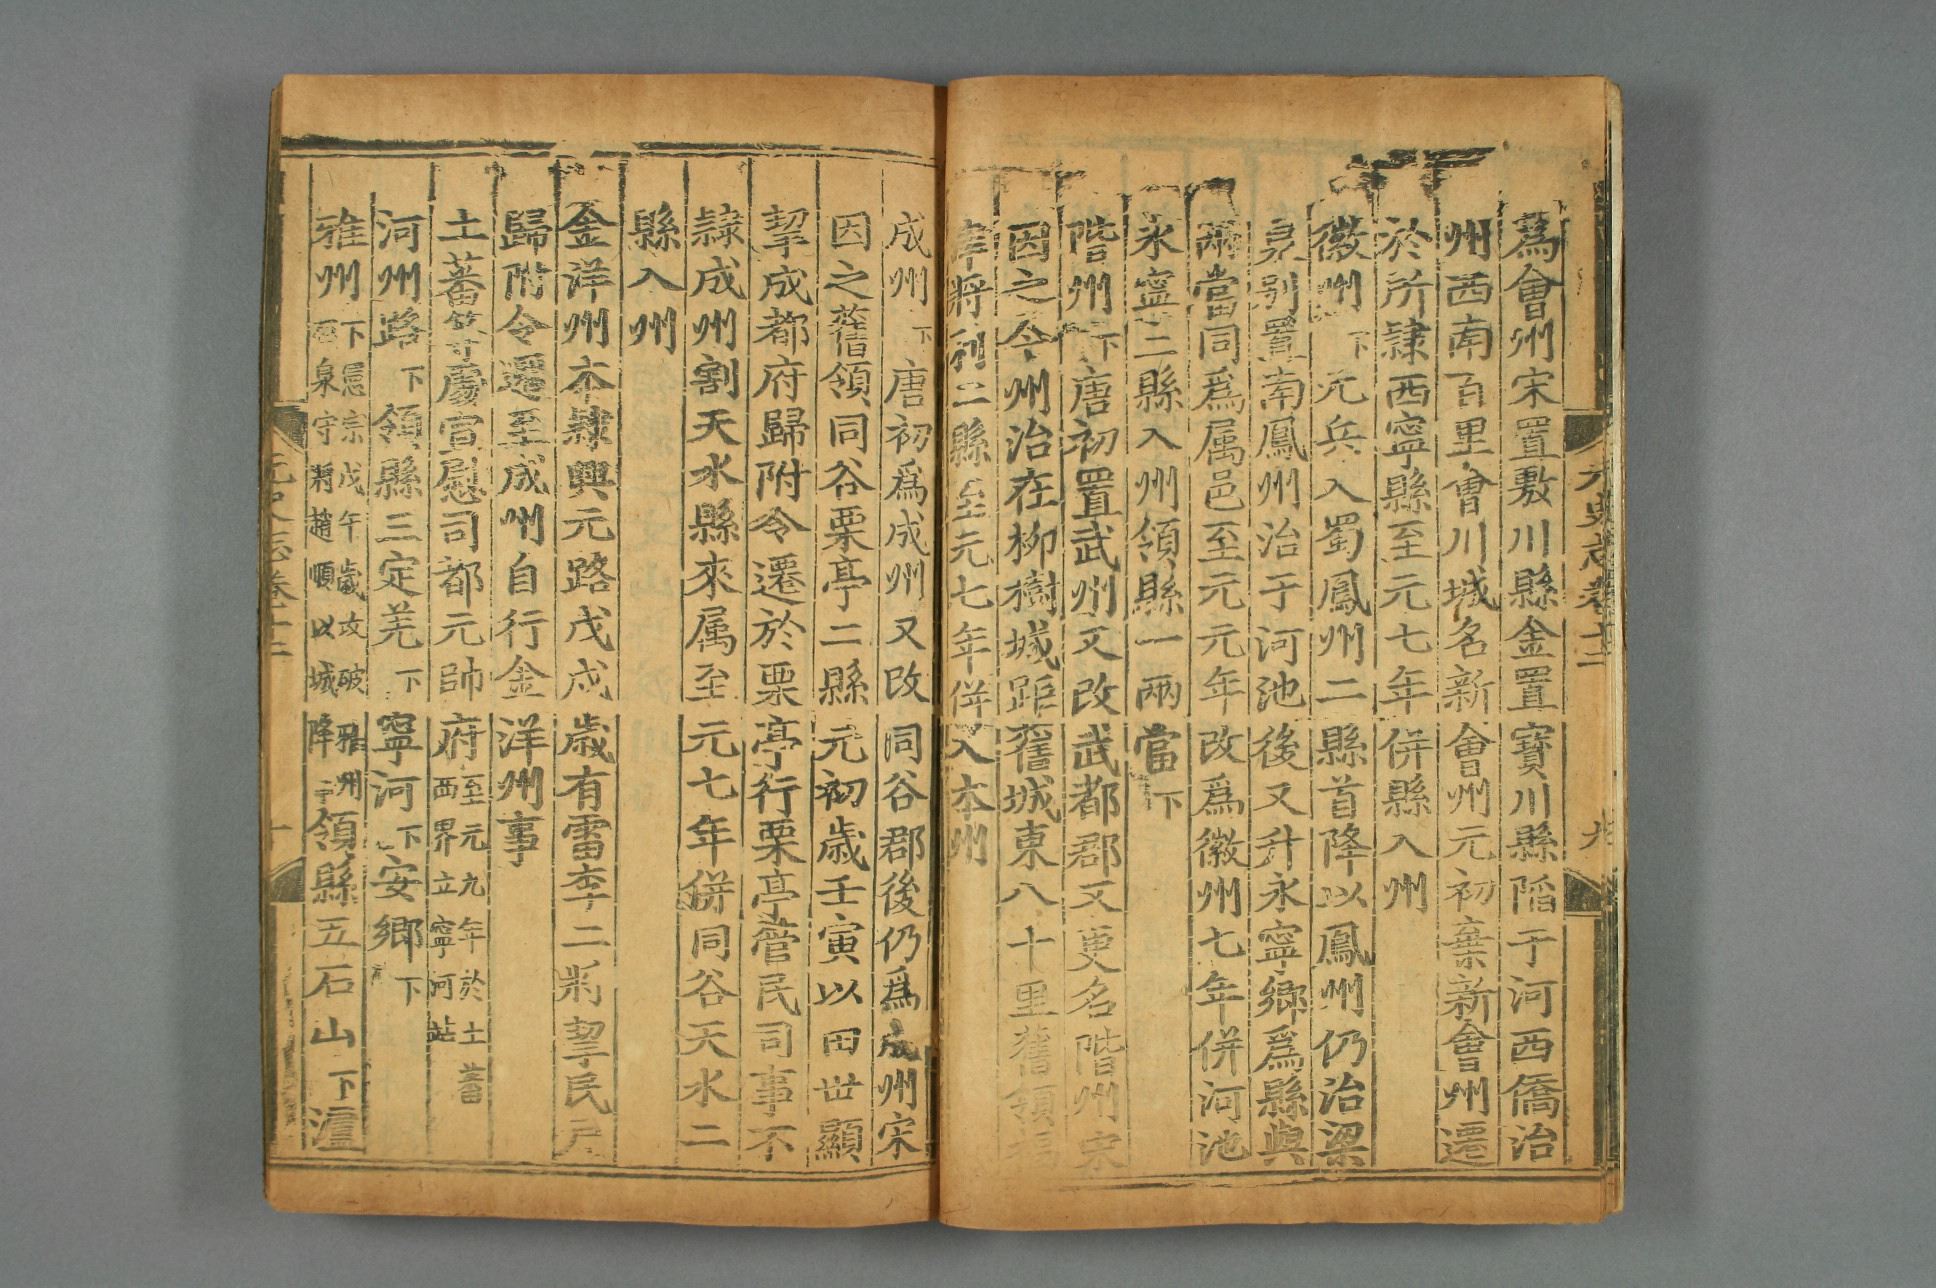 爲會州宋置敷川縣金置寶川縣陷于河西僑治
州西南百里會川城名新會州元初棄新會州遷
於所隷西寧縣至元七年併縣入州
徽州下元兵入蜀鳳州二縣首降以鳳州仍治梁
泉别置南鳳州治于河池後又升永寧鄉爲縣與
兩當同爲属邑至元元年改爲徽州七年併河池
永寧二縣入州領縣一兩當下
階州下唐初置武州又改武都郡又更名階州宋
因之今州治在柳樹城距舊城東八十里舊領福
津將利二縣至元七年併入本州
成州下唐初爲成州又改同谷郡後仍爲成州宋
因之舊領同谷栗亭二縣元初歲壬寅以田世顯
挈成都府歸附令遷於栗亭行栗亭管民司事不
隷成州割天水縣來属至元七年併同谷天水二
縣入州
金洋州本隷興元路戊戌歲有雷李二將挈民户
歸附令遷至成州自行金洋州事
土蕃等處宣慰司都元帥府至元九年於土蕃西界立寧河站
河州路下領縣三定羌下寧河下安鄉下
雅州下憲宗戊午歲攻破雅州石泉守將趙順以城降領縣五石山下瀘
元史志卷十二
九